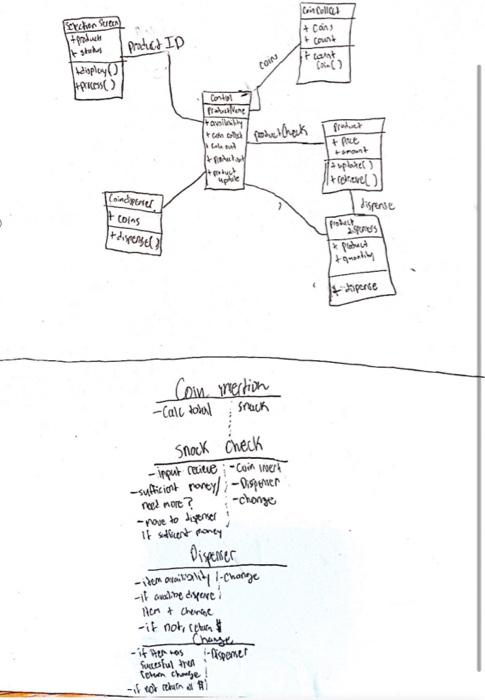 Selection Screen
+ product
+ status
+display()
+process()
Product ID
Coin Collect
+ coins
+ count
+ count
Coin()
coins
Control
Product Name
+ availability
+ coin collect
+ coin out
+ product out
+ product
update
Product Check
Product
+ price
+ amount
+ update()
+ retrieve()
dispense
Product
dispensers
+ product
+ quantity
+ dispense
Coindispenser
+ coins
+ dispense()
Coin insertion
- Calc total
snack
Snack Check
- input recieve
- sufficient money/
need more?
- move to dispenser
if sufficent money
- Coin insert
- Dispenser
- change
Dispenser
- item availability
- if availible dispense
item + change
- if not, return $
- Change
Change
- if item was
sucessful then
return change
- if not return all $
- Dispenser